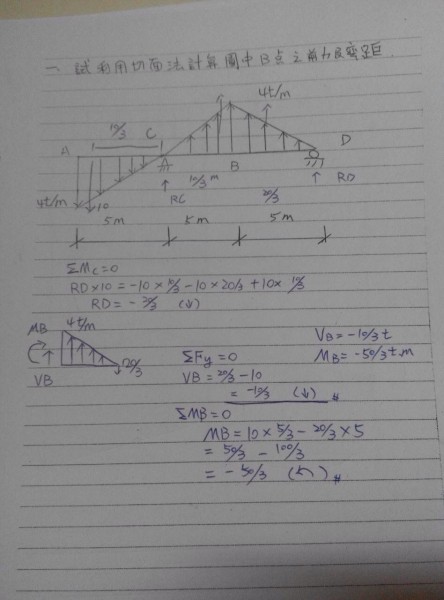 一、試利用切面法計算圖中B点之剪力及彎距
4t/m
10/3
A C D
B
4t/m
10
10/3 m
20/3
RC
RD
5m 5m 5m
ΣMc=0
RD×10 = -10×5/3 -10×20/3 +10× 10/3
RD= - 20/3 (↓)
MB 4t/m
20/3
VB
VB= -10/3 t
ΣFy =0 MB= -50/3 t.m
VB = 20/3 -10
= -10/3 (↓) #
ΣMB=0
MB = 10 × 5/3 - 20/3 ×5
= 50/3 - 100/3
= - 50/3 (↰) #